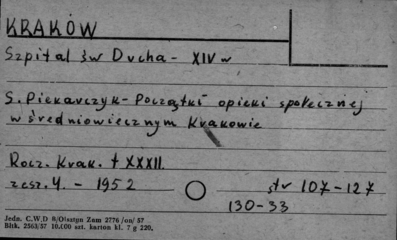 KRAKÓW
Szpital św Ducha - XIV w
S. Piekarczyk - Początki opieki społecznej
w średniowiecznym Krakowie
Rocz. Krak. t XXXII.
zesz. 4. - 1952
str 107-127
130-33
Jedn. C.W.D R/Olsztyn Zam 2776 /on/ 57
Bltk. 2563/57 10.000 szt. karton kl. 7 g 220.